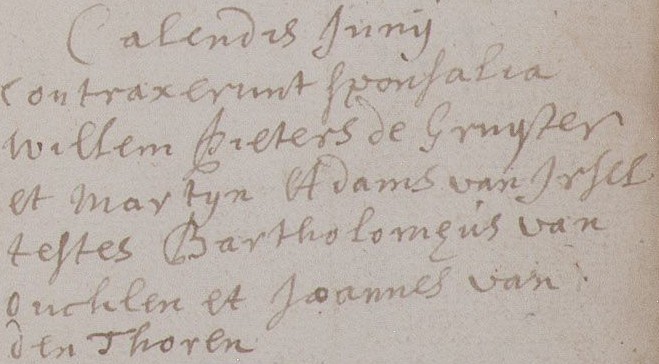 Calendis Junij
contraxerunt sponsalia
Willem Pieters de Gruyter
et Martyn Adams van Irsel
testes Bartholomęus van
Oucklen et Joannes van
den Thoren